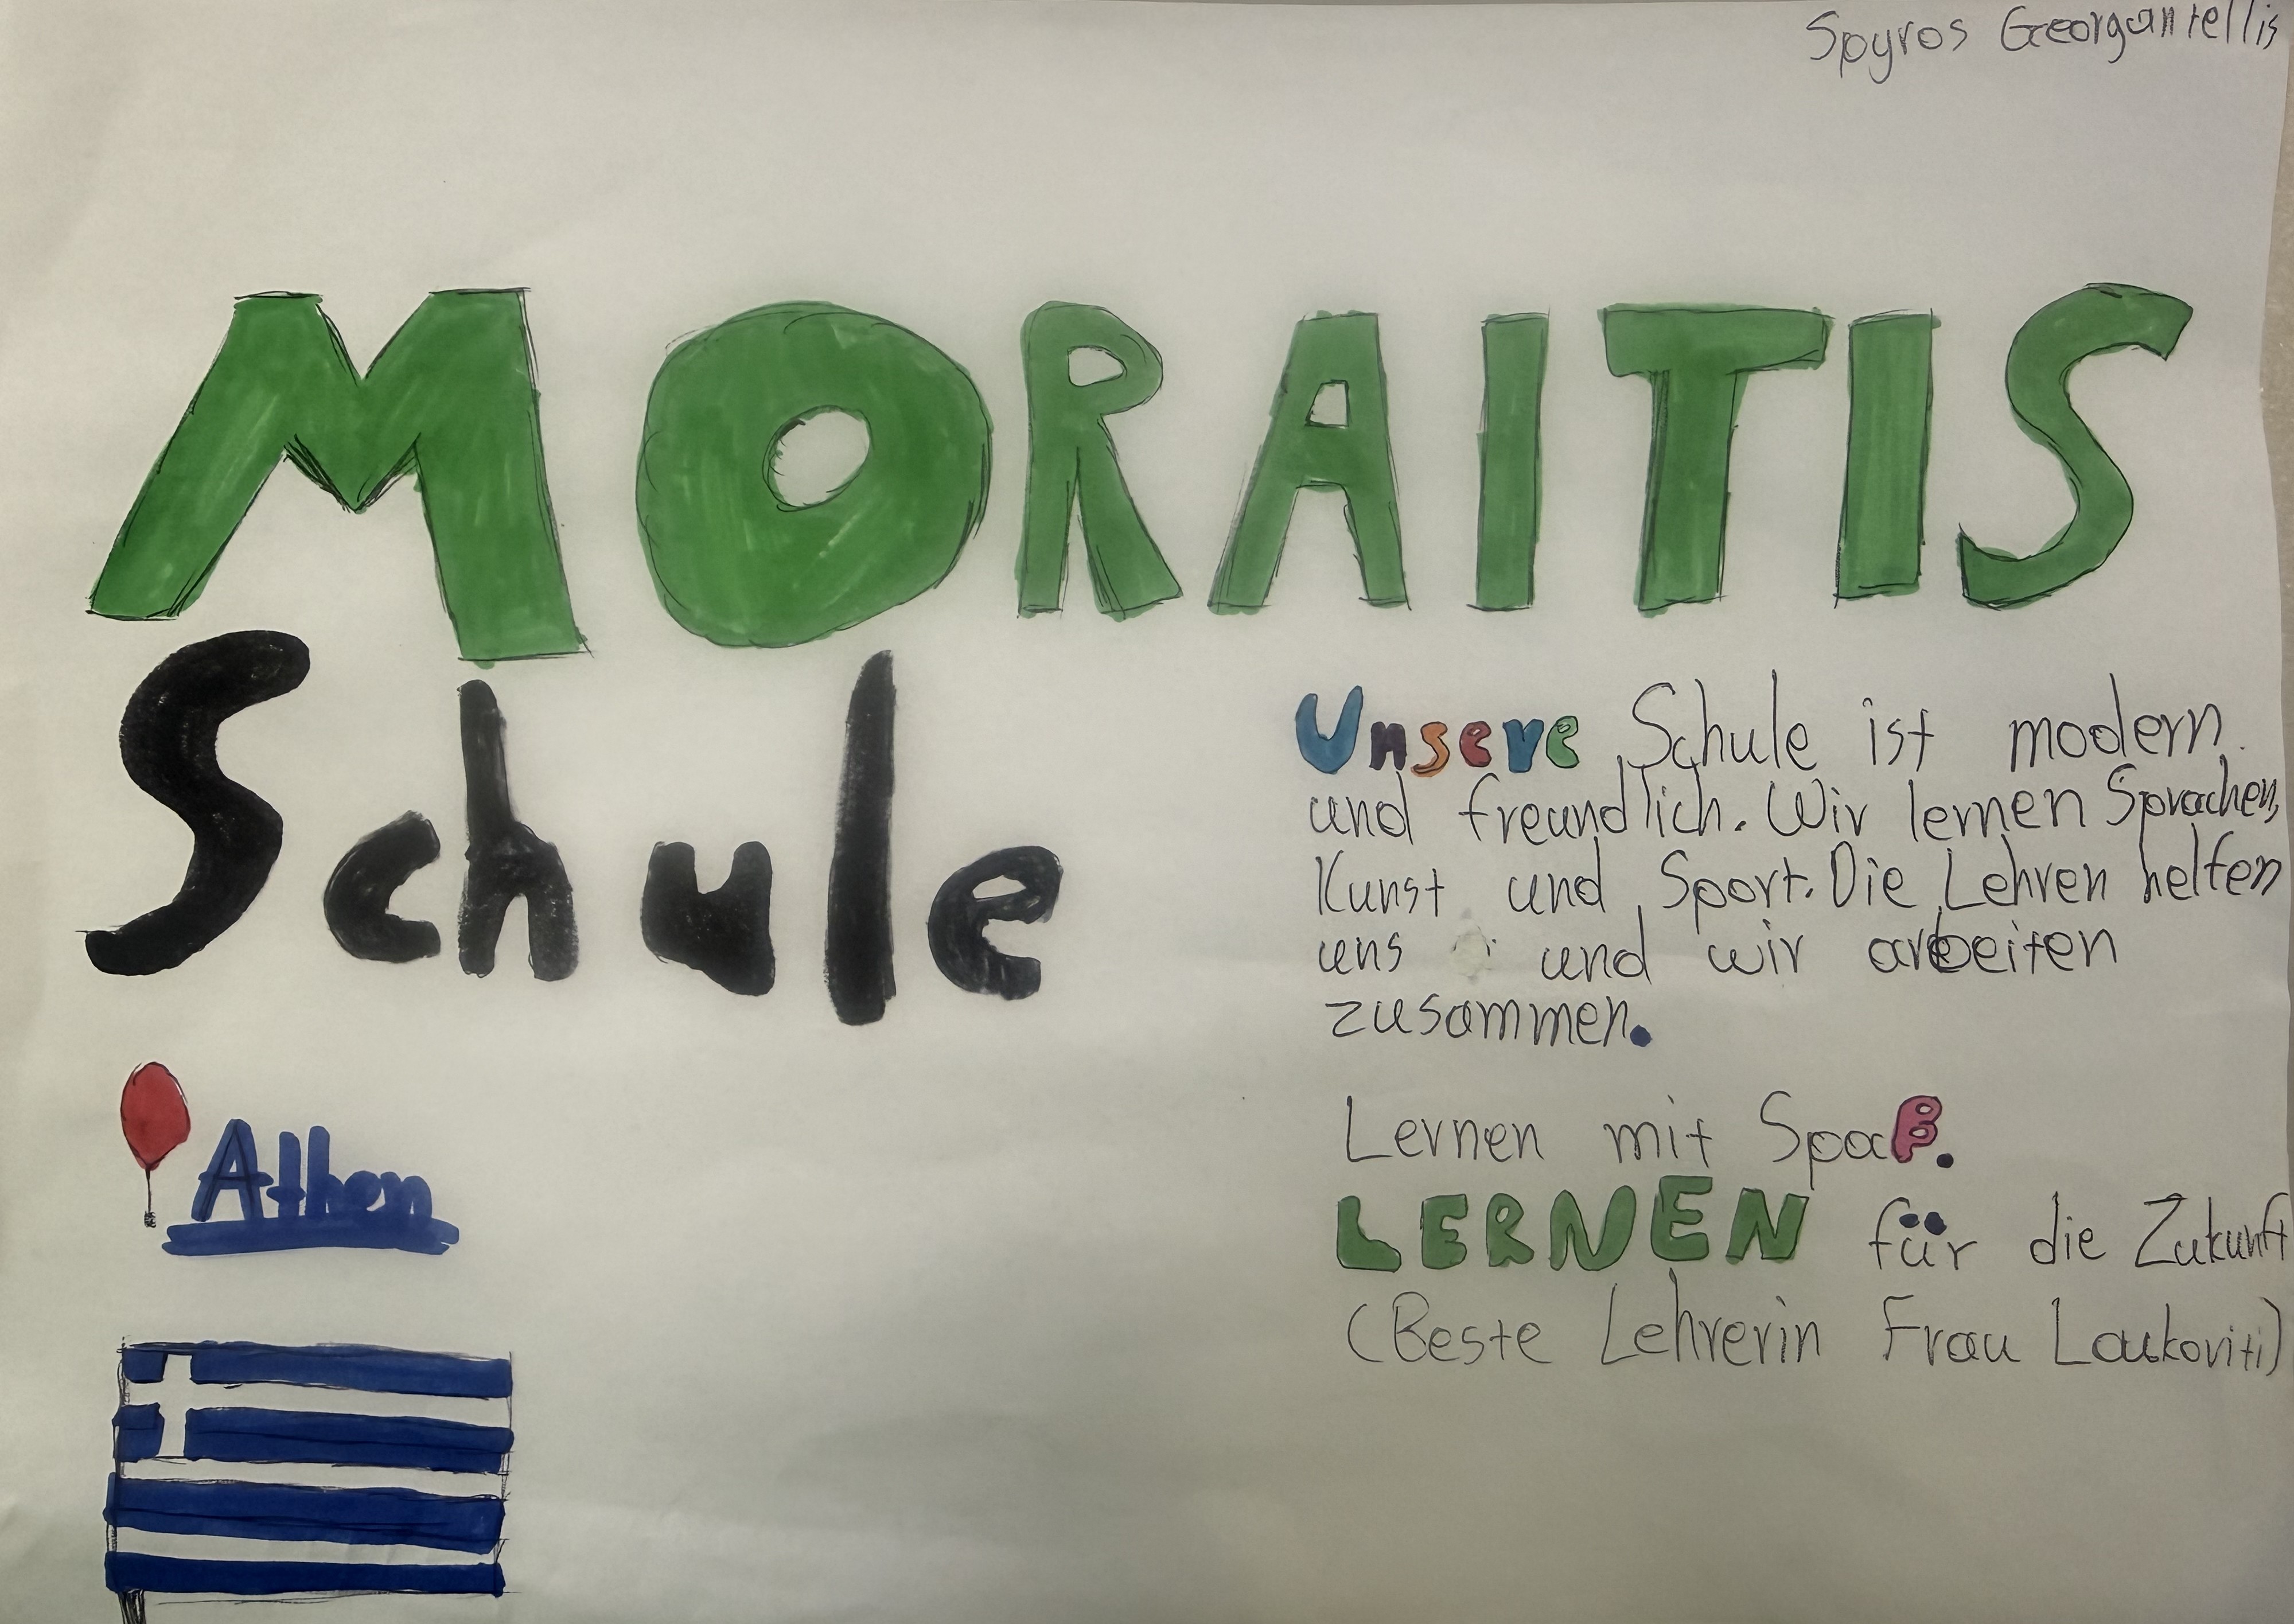 Spyros Georgantellis
MORAITIS
Schule
Unsere Schule ist modern
und freundlich. Wir lernen Sprachen,
Kunst und Sport. Die Lehren helfen
uns und wir arbeiten
zusammen.
Athen
Lernen mit Spaß.
LERNEN für die Zukunft
(Beste Lehrerin Frau Loukoviti)